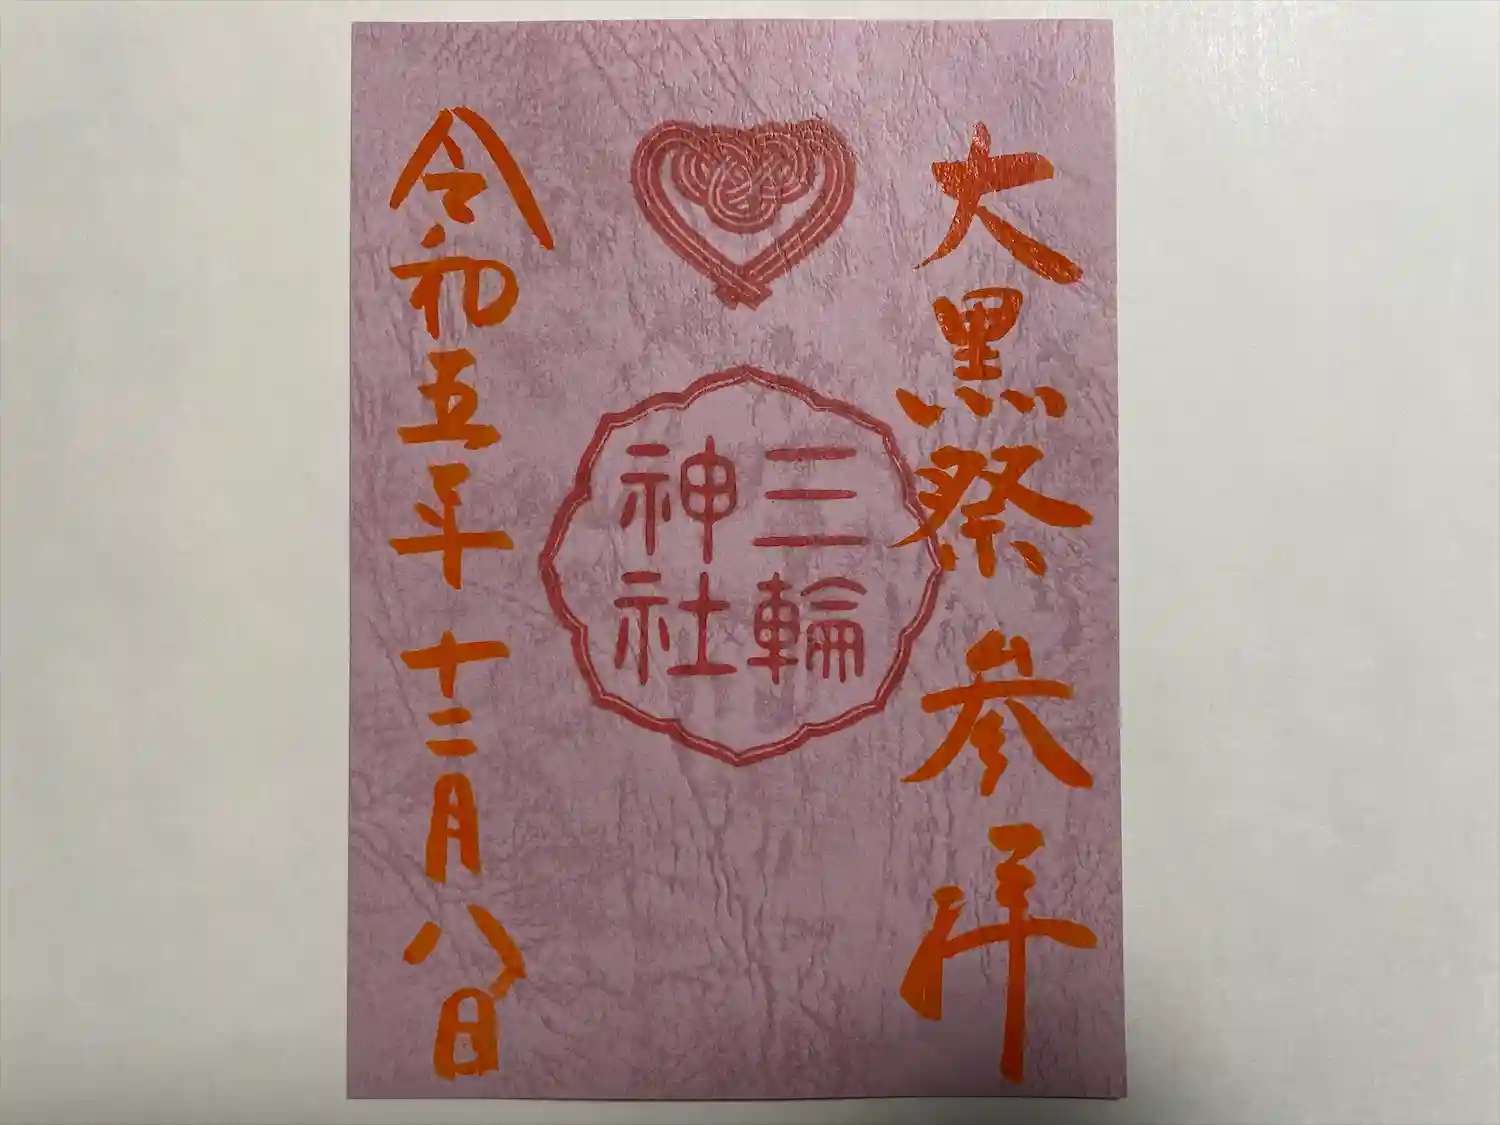 大黒祭 参拝
三輪
神社
令和五年 十二月八日